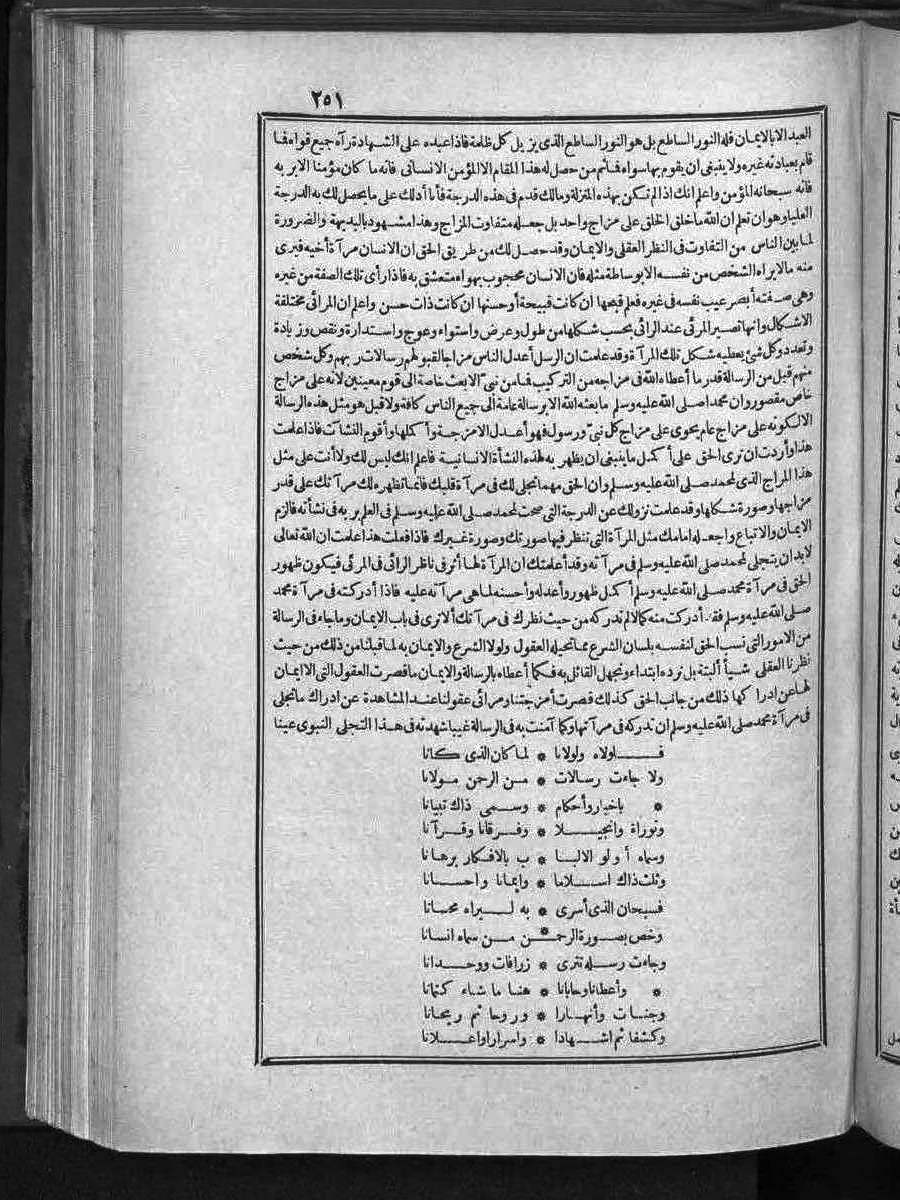 ٢٥١
العبد الا بالايمان فله النور الساطع بل هو النور الساطع الذى يزيل كل ظلمة فاذا عبده على الشهادة رآه جميع قواه فما
قام بعبادته غيره ولا ينبغى ان يقوم بها سواه فما ثم من حصل له هذا المقام الا المؤمن الانسانى فانه ما كان مؤمنا الا بربه
فانه سبحانه المؤمن واعلم انك اذا لم تكن بهذه المنزلة ومالك قدم فى هذه الدرجة فأنا أدلك على ما يحصل لك به الدرجة
العليا وهو ان تعلم ان الله ما خلق الخلق على مزاج واحد بل جعله متفاوت المزاج وهذا مشهود بالبديهة والضرورة
لما بين الناس من التفاوت فى النظر العقلى والايمان وقد حصل لك من طريق الحق ان الانسان مرآة أخيه فيرى
منه ما لا يراه الشخص من نفسه الا بوساطة مثله فان الانسان محجوب بهواه متعشق به فاذا رأى تلك الصفة من غيره
وهى صفته أبصر عيب نفسه فى غيره فعلم قبحها ان كانت قبيحة أو حسنها ان كانت ذات حسن واعلم ان المرائى مختلفة
الاشكال وانها تصير المرئى عند الرائى بحسب شكلها من طول وعرض واستواء وعوج واستدارة ونقص وزيادة
وتعدد وكل شئ يعطيه شكل تلك المرآة وقد علمت ان الرسل أعدل الناس مزاجا لقبولهم رسالات ربهم وكل شخص
منهم قبل من الرسالة قدر ما أعطاه الله فى مزاجه من التركيب فما من نبىّ الا بعث خاصة الى قوم معينين لانه على مزاج
خاص مقصور وان محمدا صلى الله عليه وسلم ما بعثه الله الا برسالة عامة الى جميع الناس كافة ولا قبل هو مثل هذه الرسالة
الا لكونه على مزاج عام يحوى على مزاج كل نبىّ ورسول فهو أعدل الامزجة وأكملها وأقوم النشآت فاذا علمت
هذا وأردت ان ترى الحق على أكمل ما ينبغى ان يظهر به لهذه النشأة الانسانية فاعلم انك ليس لك ولا أنت على مثل
هذا المزاج الذى لمحمد صلى الله عليه وسلم وان الحق مهما تجلى لك فى مرآة قلبك فانما تظهره لك مرآتك على قدر
مزاجها وصورة شكلها وقد علمت نزولك عن الدرجة التى صحت لمحمد صلى الله عليه وسلم فى العلم بربه فى نشأته فالزم
الايمان والاتباع واجعله امامك مثل المرآة التى تنظر فيها صورتك وصورة غيرك فاذا فعلت هذا علمت ان الله تعالى
لابد ان يتجلى لمحمد صلى الله عليه وسلم فى مرآته وقد أعلمتك ان المرآة لها أثر فى ناظر الرائى فى المرئى فيكون ظهور
الحق فى مرآة محمد صلى الله عليه وسلم أكمل ظهور وأعدله وأحسنه لما هى مرآته عليه فاذا أدركته فى مرآة محمد
صلى الله عليه وسلم فقد أدركت منه كمالا لم تدركه من حيث نظرك فى مرآتك ألا ترى فى باب الايمان وما جاء فى الرسالة
من الامور التى نسب الحق لنفسه بلسان الشرع مما تحيله العقول ولولا الشرع والايمان به لما قبلنا من ذلك من حيث
نظرنا العقلى شيأ ألبتة بل نرده ابتداء ونجهل القائل به فكما أعطاه بالرسالة والايمان ما قصرت العقول التى لا ايمان
لها عن ادراكها ذلك من جانب الحق كذلك قصرت أمزجتنا ومرائى عقولنا عند المشاهدة عن ادراك ما تجلى
فى مرآة محمد صلى الله عليه وسلم ان تدركه فى مرآتها وكما آمنت به فى الرسالة غيبا شهدته فى هذا التجلى النبوى عينا
فلولاه ولولانا * لما كان الذى كانا
ولا جاءت رسالات * من الرحمن مولانا
* باخبار وأحكام * وسمى ذاك تبيانا
وتوراة وانجيلا * وفرقانا وقرآنا
وسماه أولو الالبا * ب بالافكار برهانا
وثلث ذاك اسلاما * وايمانا واحسانا
فسبحان الذى أسرى * به ليراه محسانا
وخص بصورة الرحمـ * ـن من سماه انسانا
وجاءت رسله تترى * زرافات ووحدانا
* وأعطانا وحابانا * هنا ما شاء كتمانا
وجنات وأنهارا * وروحا ثم ريحانا
وكشفا ثم اشهادا * واسرارا واعلانا